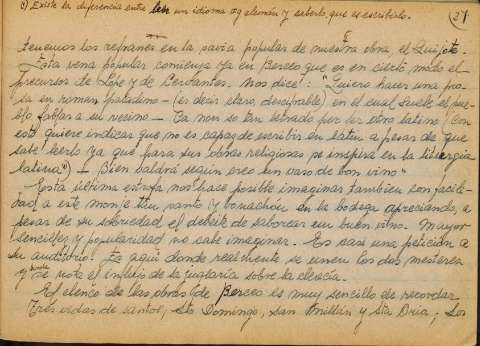 c) Existe la diferencia entre leer un idioma eg alemán y saberlo, que es escribirlo.
(27
tenemos los refranes en la savia popular de nuestra obra el Quijote.
Esta vena popular comienza ya en Berceo que es en cierto modo el
precursor de Lope y de Cervantes. Nos dice: "Quiero hacer una pro-
sa en roman paladino - (es decir claro, descifrable) en el cual suele el pue-
blo fablar a su vecino - Ca non so tan letrado por fer otro latino (con
esto quiere indicar que no es capaz de escribir en latin a pesar de que
sabe leerlo ya que para sus obras religiosas se inspira en la liturgia
latina) - Bien valdrá según creo un vaso de bon vino"
Esta última estrofa nos hace posible imaginar tambien con facili-
dad a este monje tan santo y bonachón en la bodega apreciando, a
pesar de su sobriedad el deleite de saborear un buen vino. Mayor
sencillez y popularidad no cabe imaginar. Es casi una petición a
su auditorio. Es aquí donde realmente se unen los dos mesteres
y donde se nota el influjo de la juglaría sobre la clerecía.
El elenco de las obras de Berceo es muy sencillo de recordar
Tres vidas de santos, Sto Domingo, San Millán y Sta Oria; Los